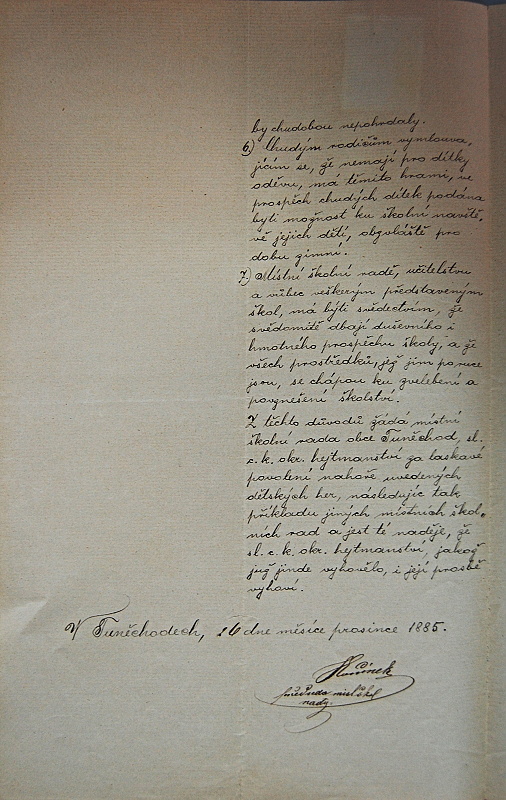 by chudobou nepohrdaly.
6.) Chudým rodičům vymlouva,
jícím se, že nemají pro dítky
oděvu, má těmito hrami, ve
prospěch chudých dítek podána
býti možnost ku školní návště,
vě jejich dětí, obzvláště pro
dobu zimní.
7.) Místní školní radě, učitelstvu
a vůbec veškerým představeným
škol, má býti svědectvím, že
svědomitě dbají duševního i
hmotného prospěchu školy, a že
všech prostředků, jež jim po ruce
jsou, se chápou ku zvelebení a
povznešení školství.
Z těchto důvodů žádá místní
školní rada obce Tuněchod, sl.
c. k. okr. hejtmanství za laskavé
povolení nahoře uvedených
dětských her, následujíc tak
příkladu jiných místních škol,
ních rad a jest té naděje, že
sl. c. k. okr. hejtmanství, jakož
již jinde vyhovělo, i její prosbě
vyhoví.
V Tuněchodech, 16 dne měsíce prosince 1885.
předseda míst. škol
rady.